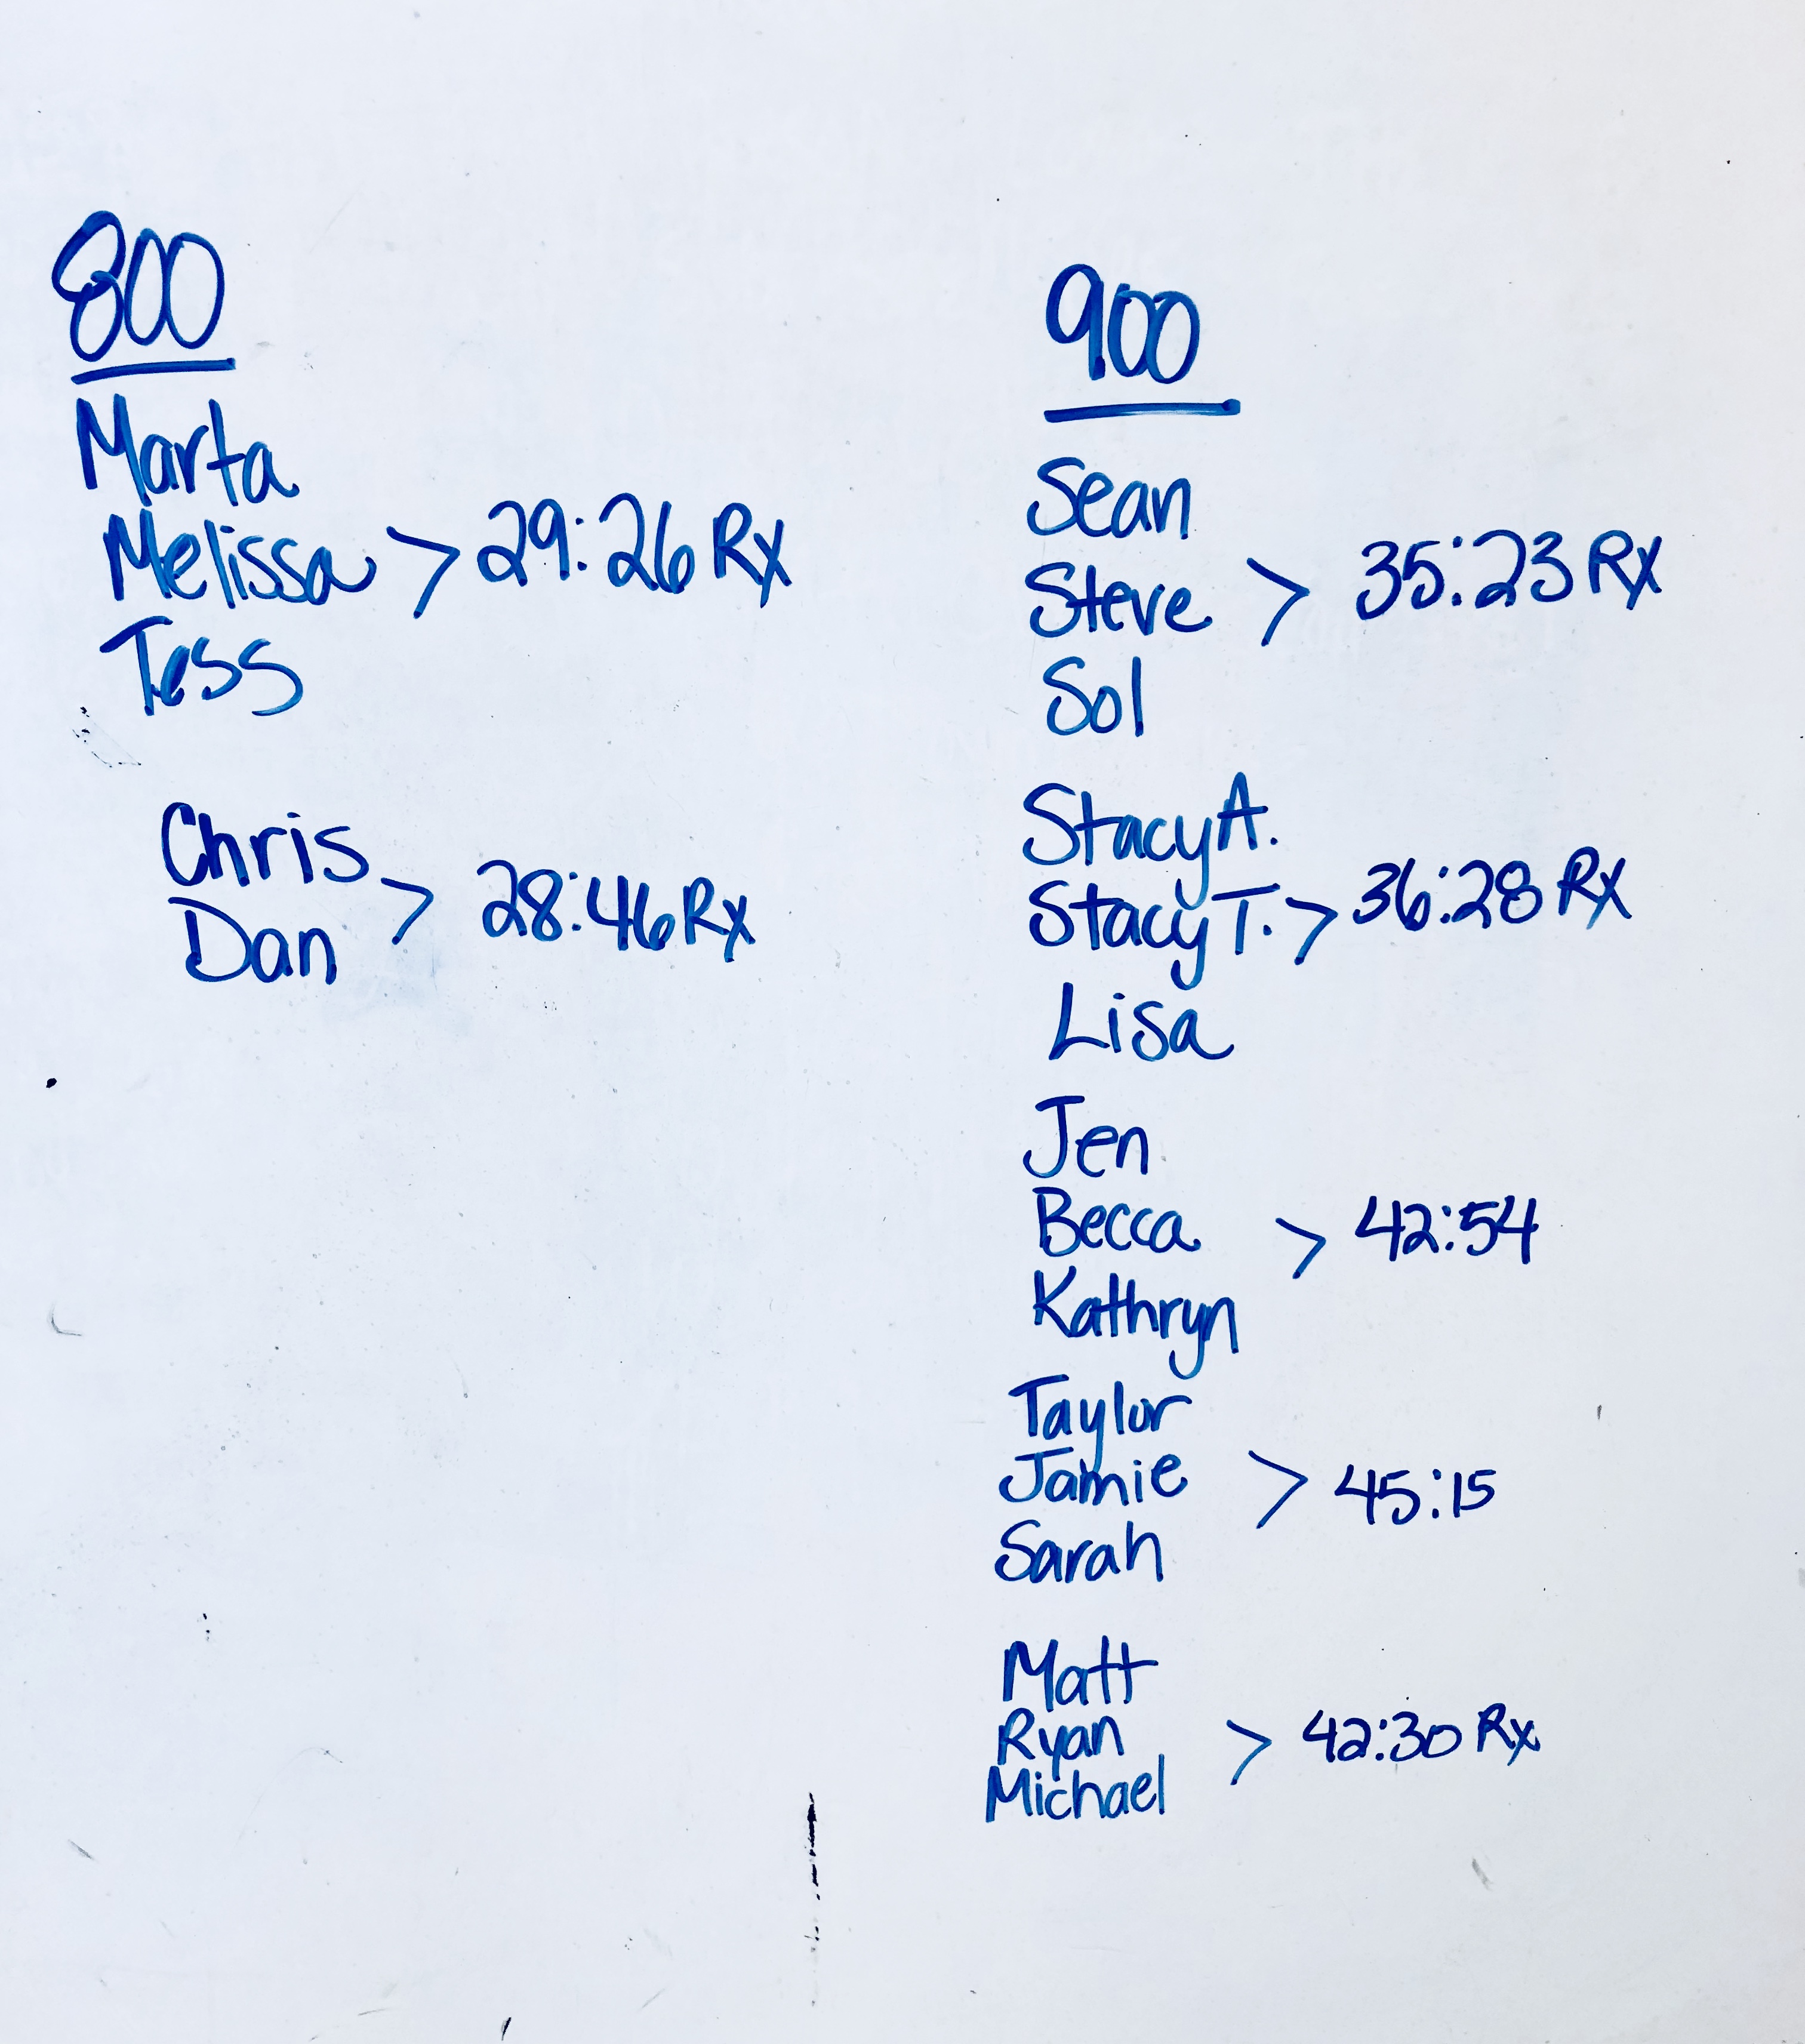 800
Marta
Melissa > 29:26 Rx
Tess
Chris
Dan > 28:46 Rx
900
Sean
Steve > 35:23 Rx
Sol
Stacy A.
Stacy T. > 36:28 Rx
Lisa
Jen
Becca > 42:54
Kathryn
Taylor
Jamie > 45:15
Sarah
Matt
Ryan > 42:30 Rx
Michael